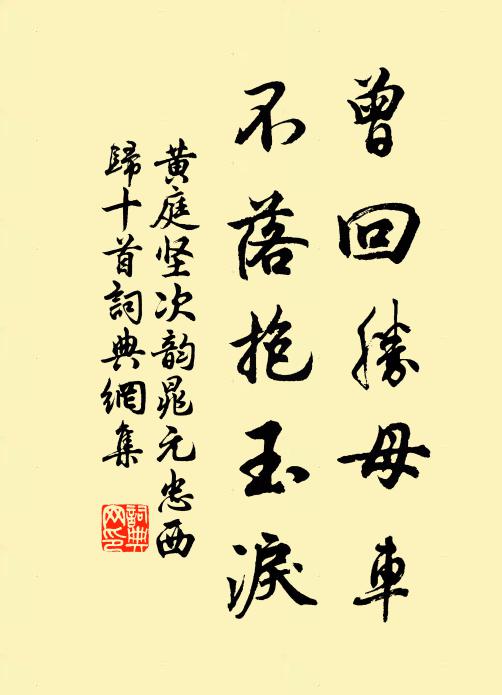 曾回勝母車
不落抱玉淚
黄庭坚次韵晁元忠西
歸十首詞典網集
詞典网印